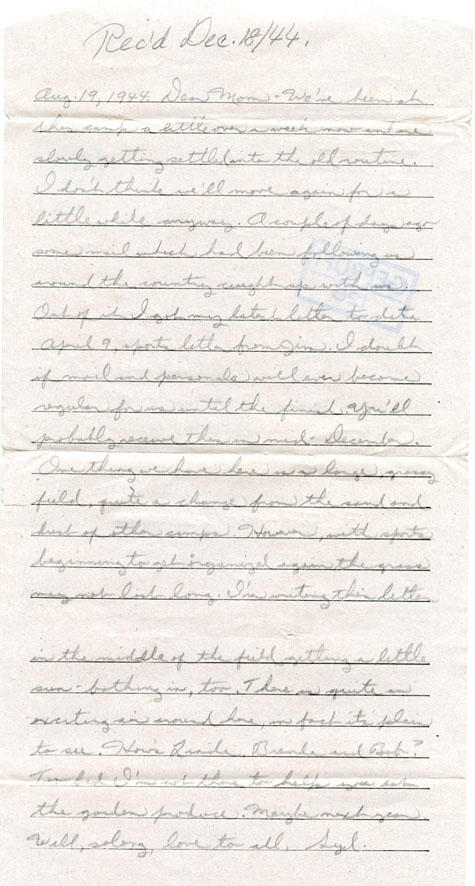 Rec'd Dec. 18/44.
Aug. 19, 1944. Dear Mom - We've been at
this camp a little over a week now and are
slowly getting settled into the old routine.
I don't think we'll move again for a
little while anyway. A couple of days ago
some mail which had been following us
around the country caught up with us.
Out of it I got my latest letter to date
April 9, sports letter from Jim. I doubt
if mail and personals will ever become
regular for us until the finish. You'll
probably receive this in mid-December.
One thing we have here is a large, grassy
field, quite a change from the sand and
dust of other camps. However, with sports
beginning to get organized again the grass
may not last long. I'm writing this letter
in the middle of the field, getting a little
sun-bathing in, too. There is quite an
exciting air around here, in fact it's plain
to see. How's Linda, Brenda and Bob?
Too bad I'm not there to help you eat
the garden produce. Maybe next year.
Well, so long, love to all, Syl.